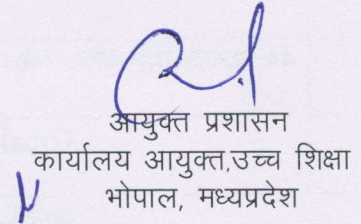 आयुक्त प्रशासन
कार्यालय आयुक्त,उच्च शिक्षा
भोपाल, मध्यप्रदेश